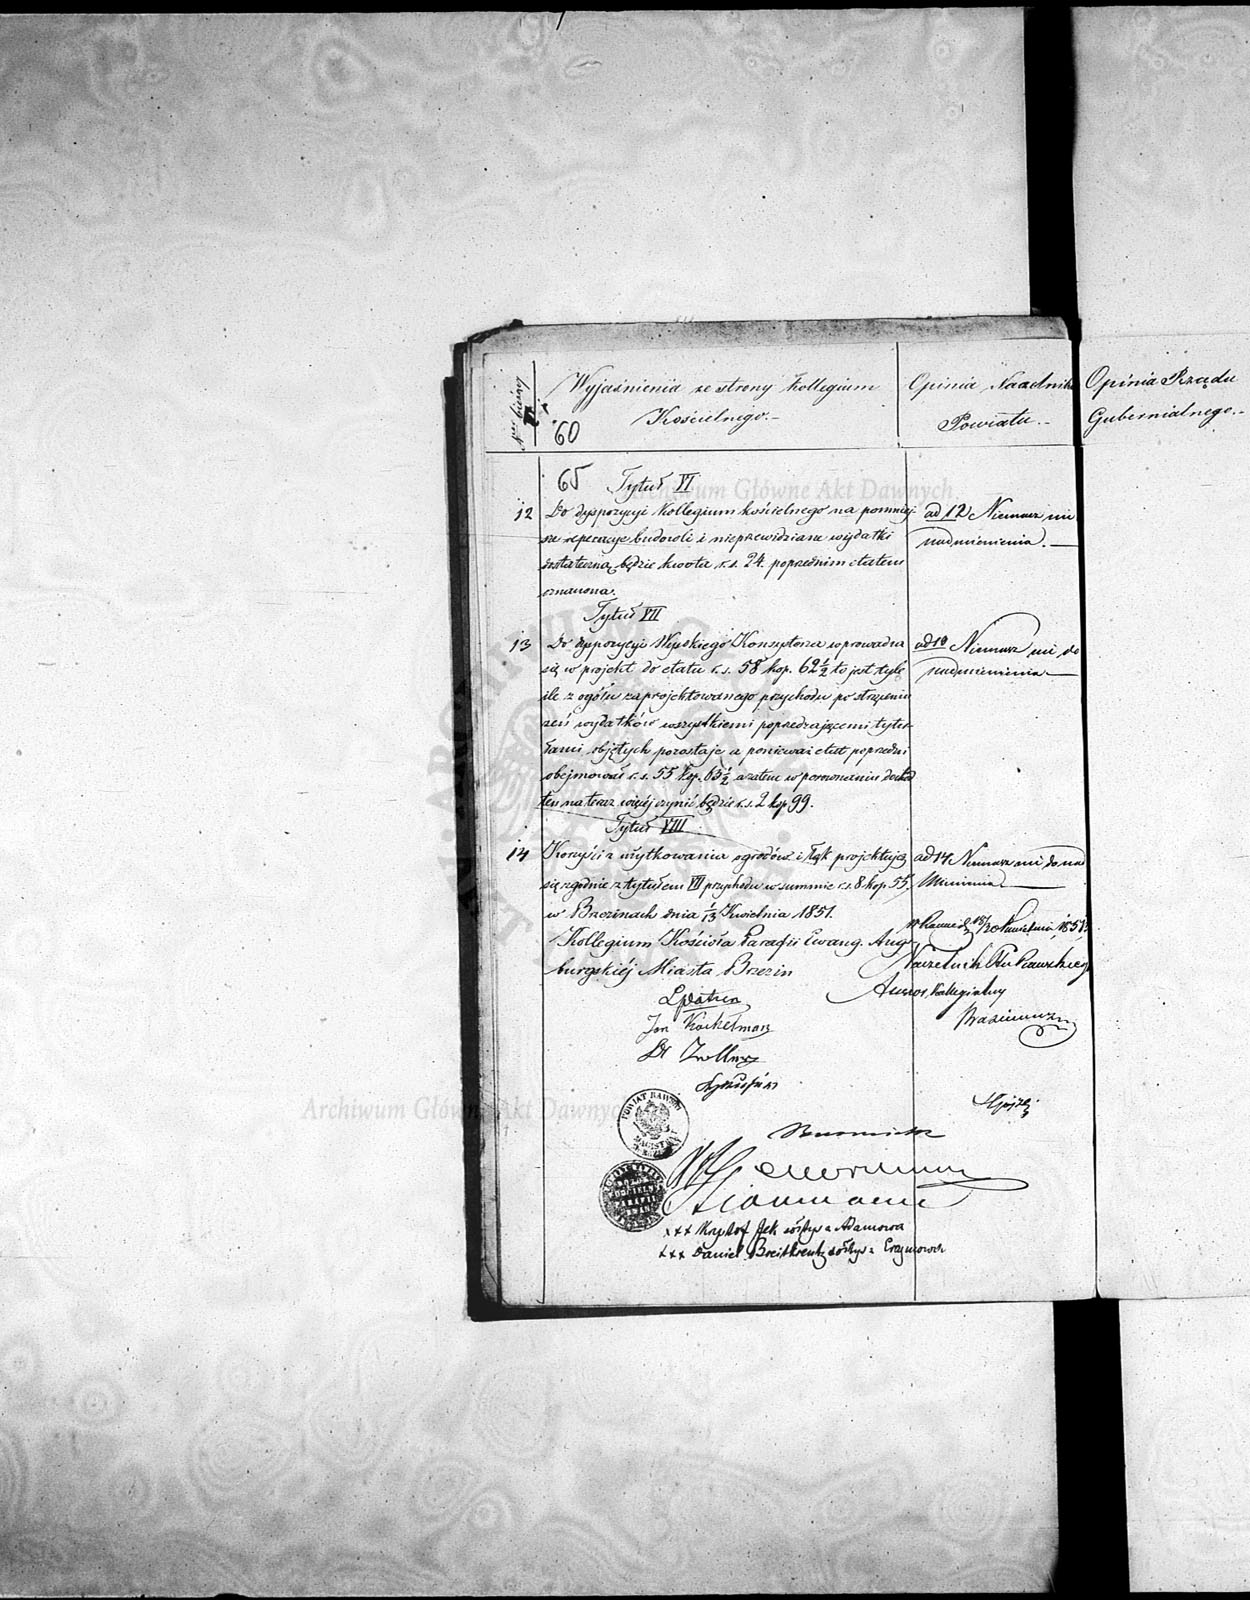 Nr bieżący
Wyjaśnienia ze strony Kollegium
Kościelnego.-
60
Opinia Naczelnika
Powiatu.-
Opinia Rządu
Gubernialnego.-
65 Tytuł VI
12 Do dyspozycyi Kollegium kościelnego na pomniej
sze reperacye budowli i nieprzewidziane wydatki
dostateczną będzie kwota r.s. 24. poprzednim etatem
oznaczona.
ad 12 Niemasz nic
nadmienienia.
Tytuł VII
13 Do dyspozycyi Wysokiego Konsystorza wprowadza
się w projekt do etatu r.s. 58 kop. 62½ to jest tyle
ile z ogółu zaprojektowanego przychodu po strące
niu wydatków wszystkiemi poprzedzającemi tytu
łami objętych pozostaje a ponieważ etat poprzedni
obejmował r.s. 55 kop. 63½ a zatem w porównaniu
ten na teraz więcej czynić będzie r.s. 2 kop 99.
ad 13 Niemasz nic do
nadmienienia
Tytuł VIII
14 Korzyści z użytkowania ogrodów i łąk projektują
się zgodnie z tytułem VII przychodu w summie r.s. 8 kop 55,
w Brzezinach dnia 1/13 Kwietnia 1851.
ad 14 Niemasz nic do nad
mienienia
Kollegium Kościoła Parafii Ewang. Augs
burgskiéj Miasta Brzezin
w Rawie d. 18/30 Kwietnia 1851
Naczelnik Ptu Rawskiego
Assesor Kollegialny
Jan Kockelman
POWIAT RAWSKI
xxx Krysztof Jek sołtys z Adamowa
xxx Daniel Breitkreutz sołtys z Erazmowa
Archiwum Główne Akt Dawnych
Archiwum Główne Akt Dawnych